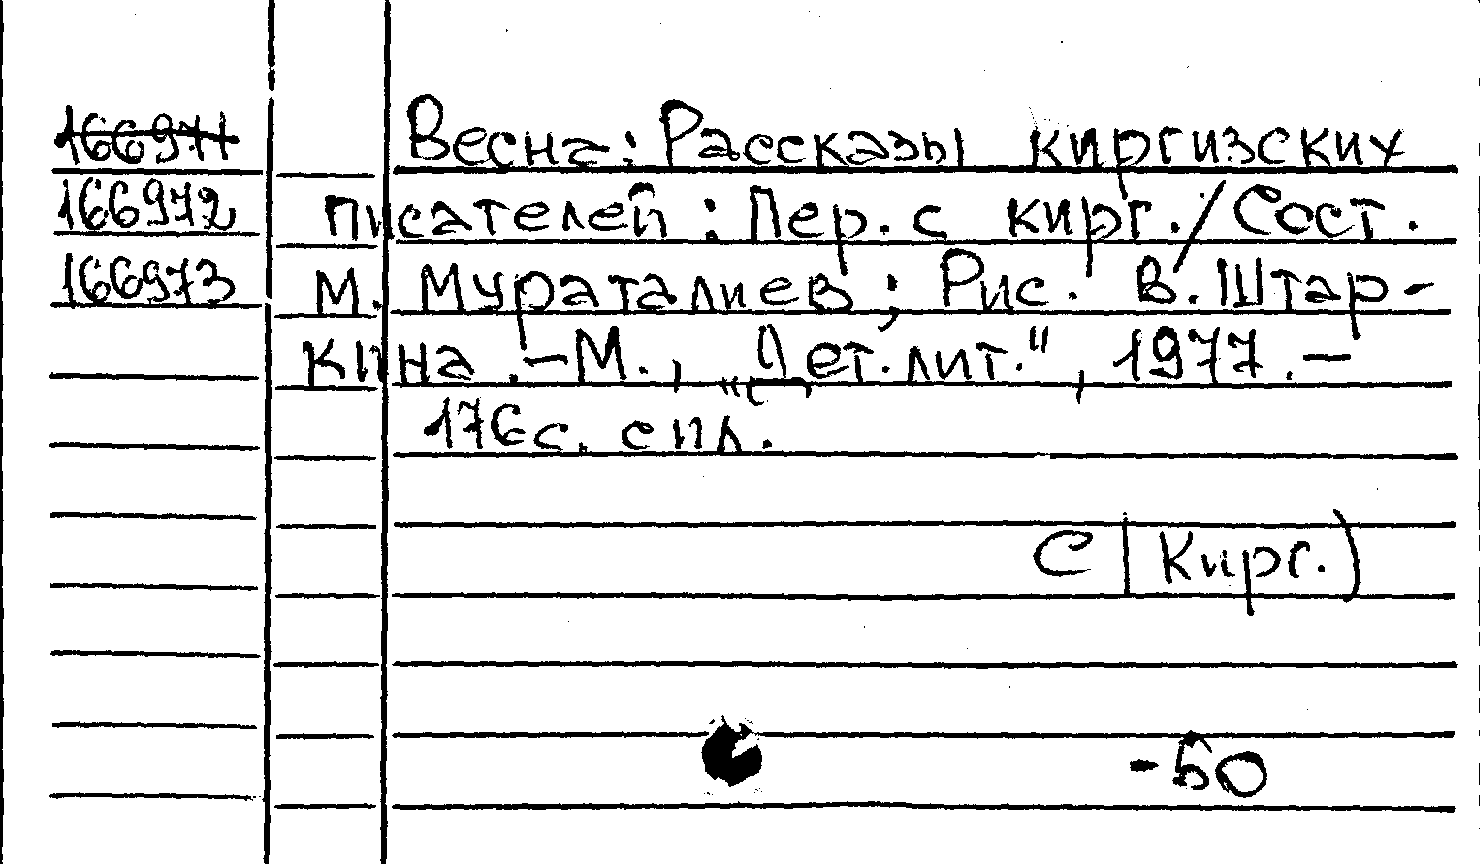 166971 Весна: Рассказы киргизских
166972 писателей: Пер. с кирг./Сост.
166973 М. Мураталиев; Рис. В. Штар-
кина. - М., „Дет. лит.", 1977. -
176 с. с ил.
С (Кирг.)
-50